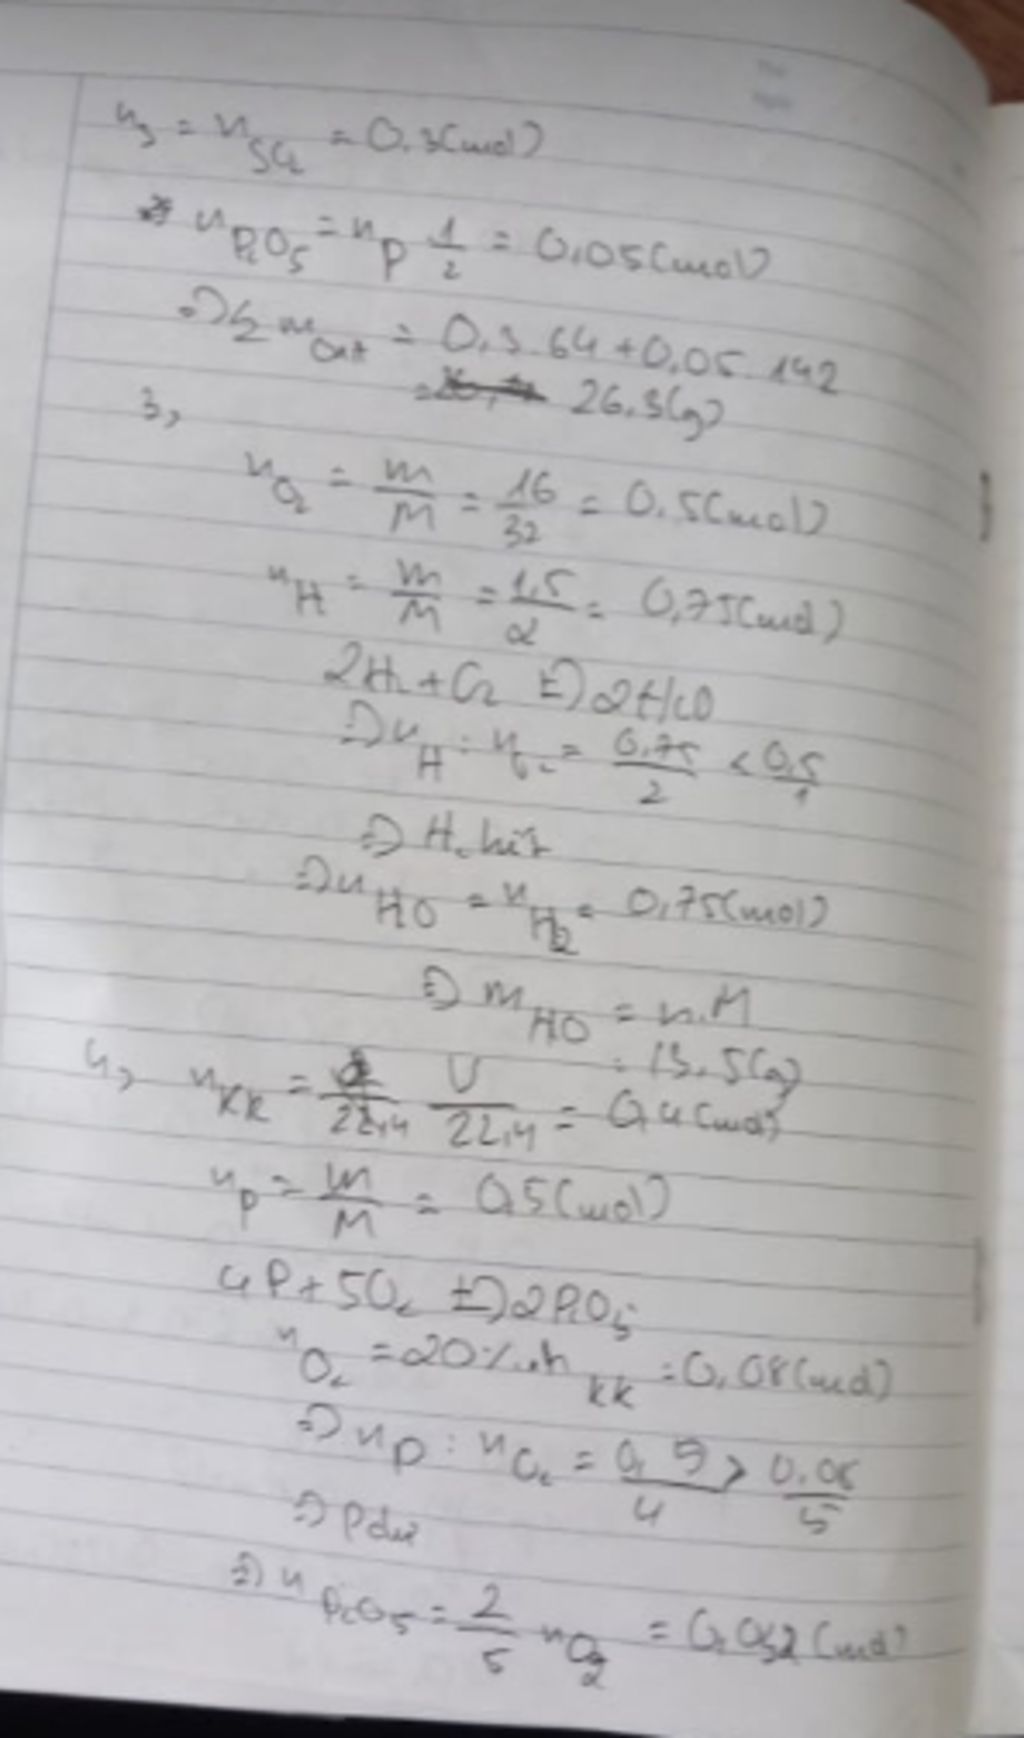 n_S = n_SO2 = 0.3(mol)
* n_P2O5 = n_P 1/2 = 0,05(mol)
=> Σ m_oxit = 0.3 64 + 0,05 142
= 26.3(g)
3,
n_O2 = m/M = 16/32 = 0.5(mol)
n_H = m/M = 1,5/2 = 0,75(mol)
2H2 + O2 => 2H2O
=> n_H : n_O2 = 0.75/2 < 0,5/1
=> H2 hết
=> n_HO = n_H2 = 0,75(mol)
=> m_HO = n.M
= 13.5(g)
4, n_KK = V/22,4 = 0,4(mol)
n_P = m/M = 0,5(mol)
4P + 5O2 => 2P2O5
n_O2 = 20%.n_KK = 0,08(mol)
=> n_P : n_O2 = 0,5/4 > 0.08/5
=> P dư
=> n_P2O5 = 2/5 n_O2 = 0,032(mol)